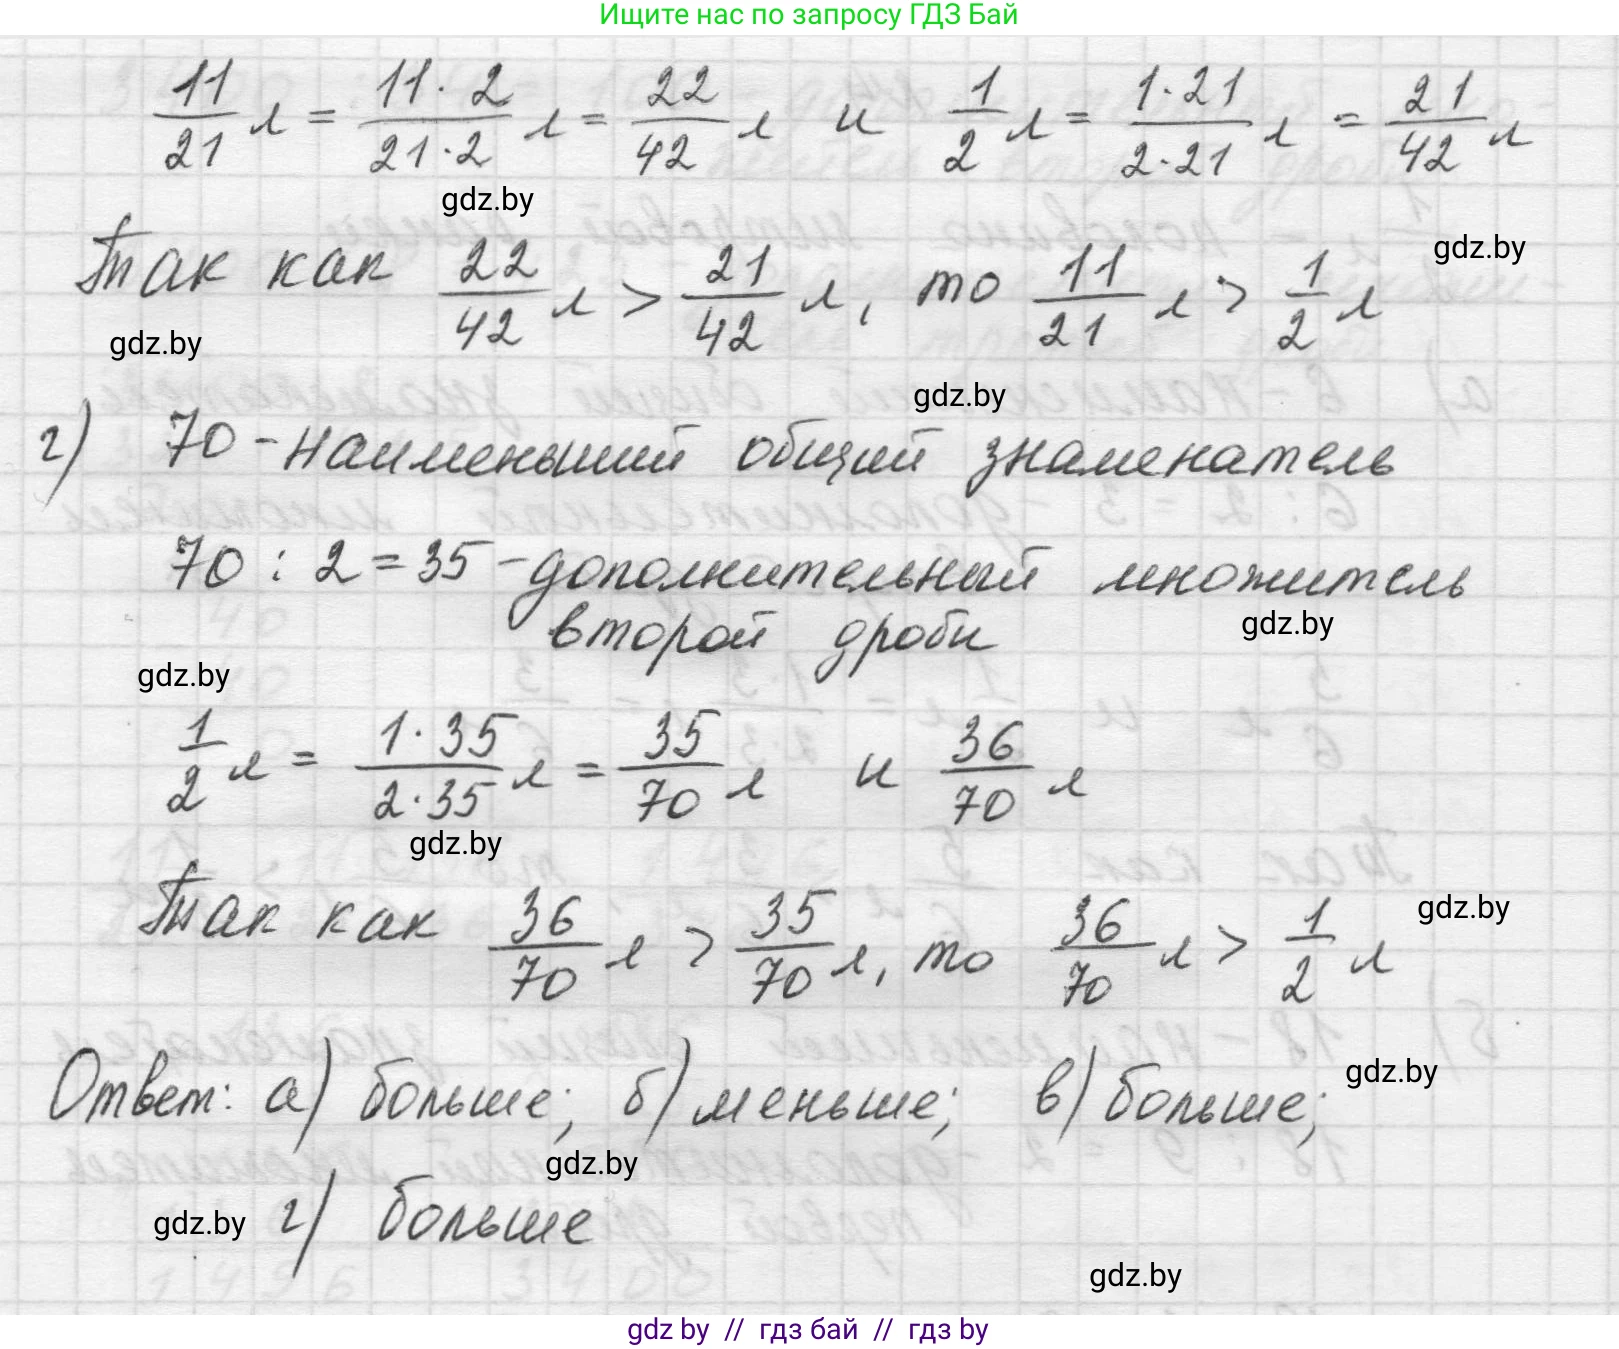 Ищите нас по запросу ГДЗ Бай
11/21 л = 11·2/21·2 л = 22/42 л и 1/2 л = 1·21/2·21 л = 21/42 л
gdz.by
gdz.by
Так как 22/42 л > 21/42 л, то 11/21 л > 1/2 л
gdz.by
gdz.by
г) 70 - наименьший общий знаменатель
70 : 2 = 35 - дополнительный множитель
gdz.by
второй дроби
gdz.by
1/2 л = 1·35/2·35 л = 35/70 л и 36/70 л
gdz.by
Так как 36/70 л > 35/70 л, то 36/70 л > 1/2 л
gdz.by
gdz.by
Ответ: а) больше; б) меньше; в) больше;
gdz.by
gdz.by
г) больше
gdz.by
gdz by // гдз бай // гдз by